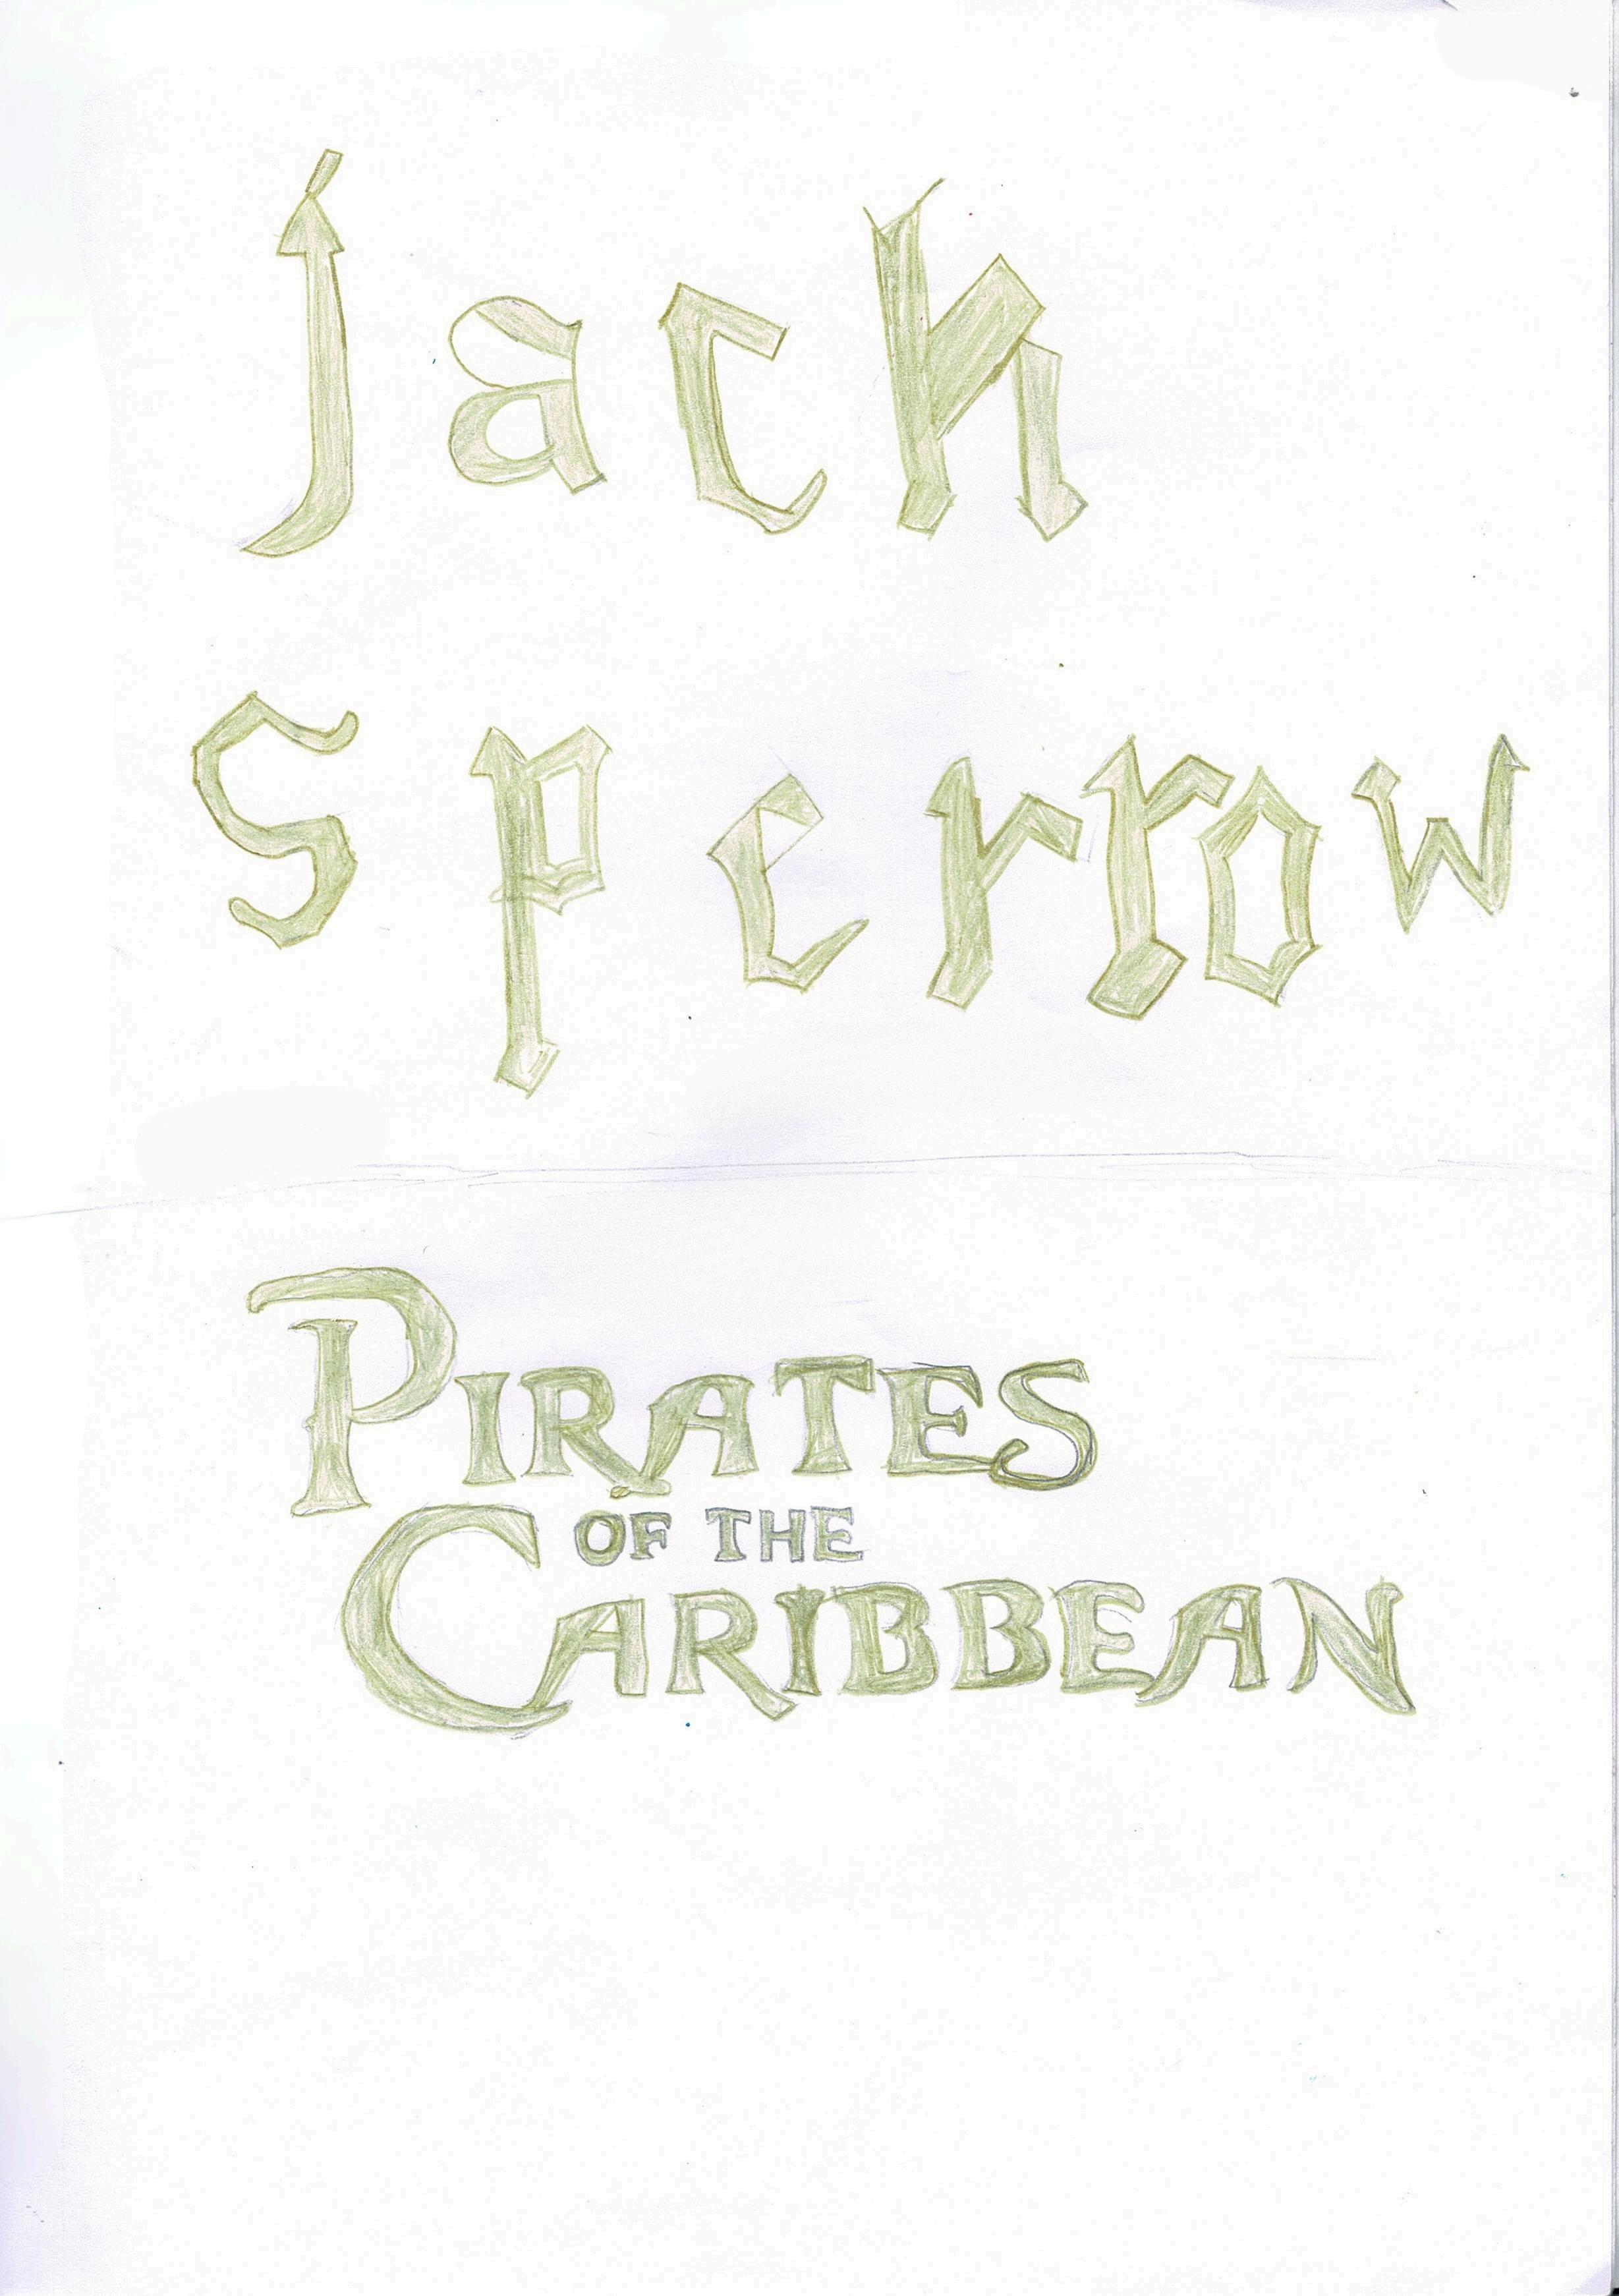 jack
sperrow
PIRATES
OF THE
CARIBBEAN